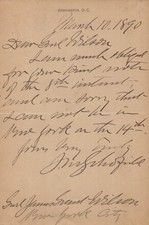 WASHINGTON, D.C.
March 10. 1890
Dear Genl Wilson
I am much obliged
for your kind note
of the 8th instant;
and am sorry that
I am not to be in
New York on the 14th.
Yours very truly
J M Schofield
Genl James Grant Wilson
New York City